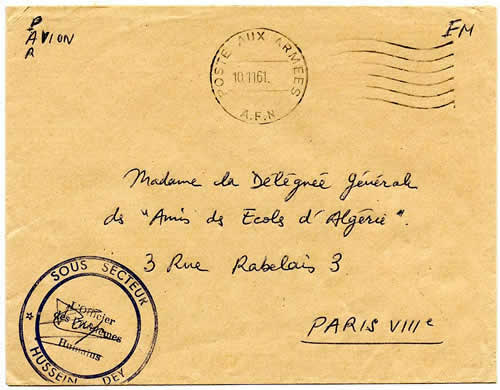 P
AVION
R
FM
POSTE AUX ARMÉES
10.1161.
A.F.N
Madame la Déléguée Générale
des "Amis des Ecoles d'Algérie".
3 Rue Rabelais 3
PARIS VIIIe
SOUS SECTEUR
L'Officier
des
Humains
HUSSEIN DEY